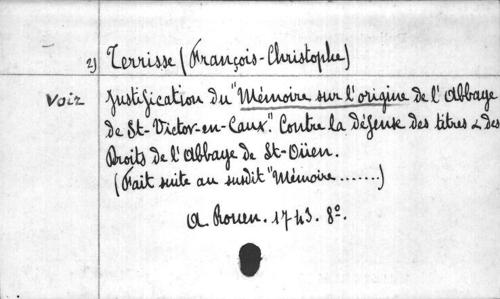 2) Terrisse (François-Christophe)
Voir Justification du "Mémoire sur l'origine de l'Abbaye
de St-Victor-en-Caux". Contre la défense des titres & des
Droits de l'Abbaye de St-Oüen.
(Fait suite au susdit "Mémoire .......)
A Rouen. 1743. 8º.